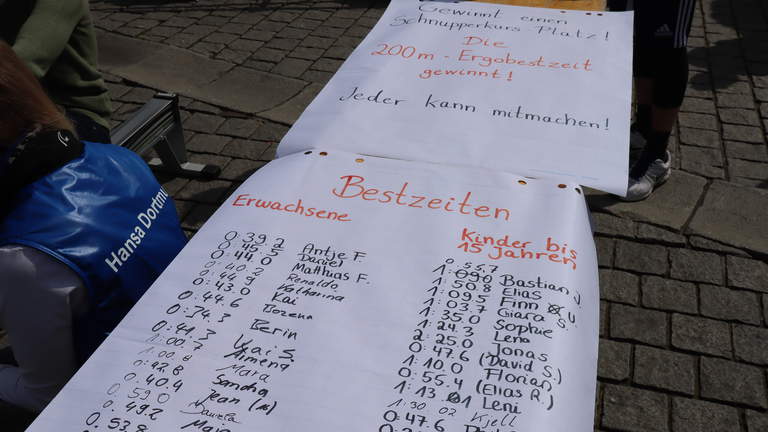 Gewinnt einen
Schnupperkurs Platz!
Die
200m - Ergobestzeit
gewinnt!
Jeder kann mitmachen!
Hansa Dortmu
Bestzeiten
Erwachsene
0:39.2 Antje F.
0:45.5 Daniel
0:44.0 Matthias F.
0:40.2 Renaldo
0:44.9 Katharina
0:43.0 Kai
0:44.6 Bozena
0:54.3 Berin
0:44.3 Kai S.
1:00.7 Aimena
1:00.8 Mara
0:42.8 Sandra
0:40.4 Jean
0:49.2 Daniela
0:53.8
Kinder bis
15 Jahren
0:55.7 Bastian J.
Elias
1:50.8 Finn
1:09.5 Giara S.
1:03.7 Sophie
1:35.0 Lena
1:24.3 Jonas
2:25.0 (David S.)
0:47.6 Florian
1:10.0 (Elias R.)
0:55.4 Leni
1:13 01 Kjell
1:30 02
0:47.6